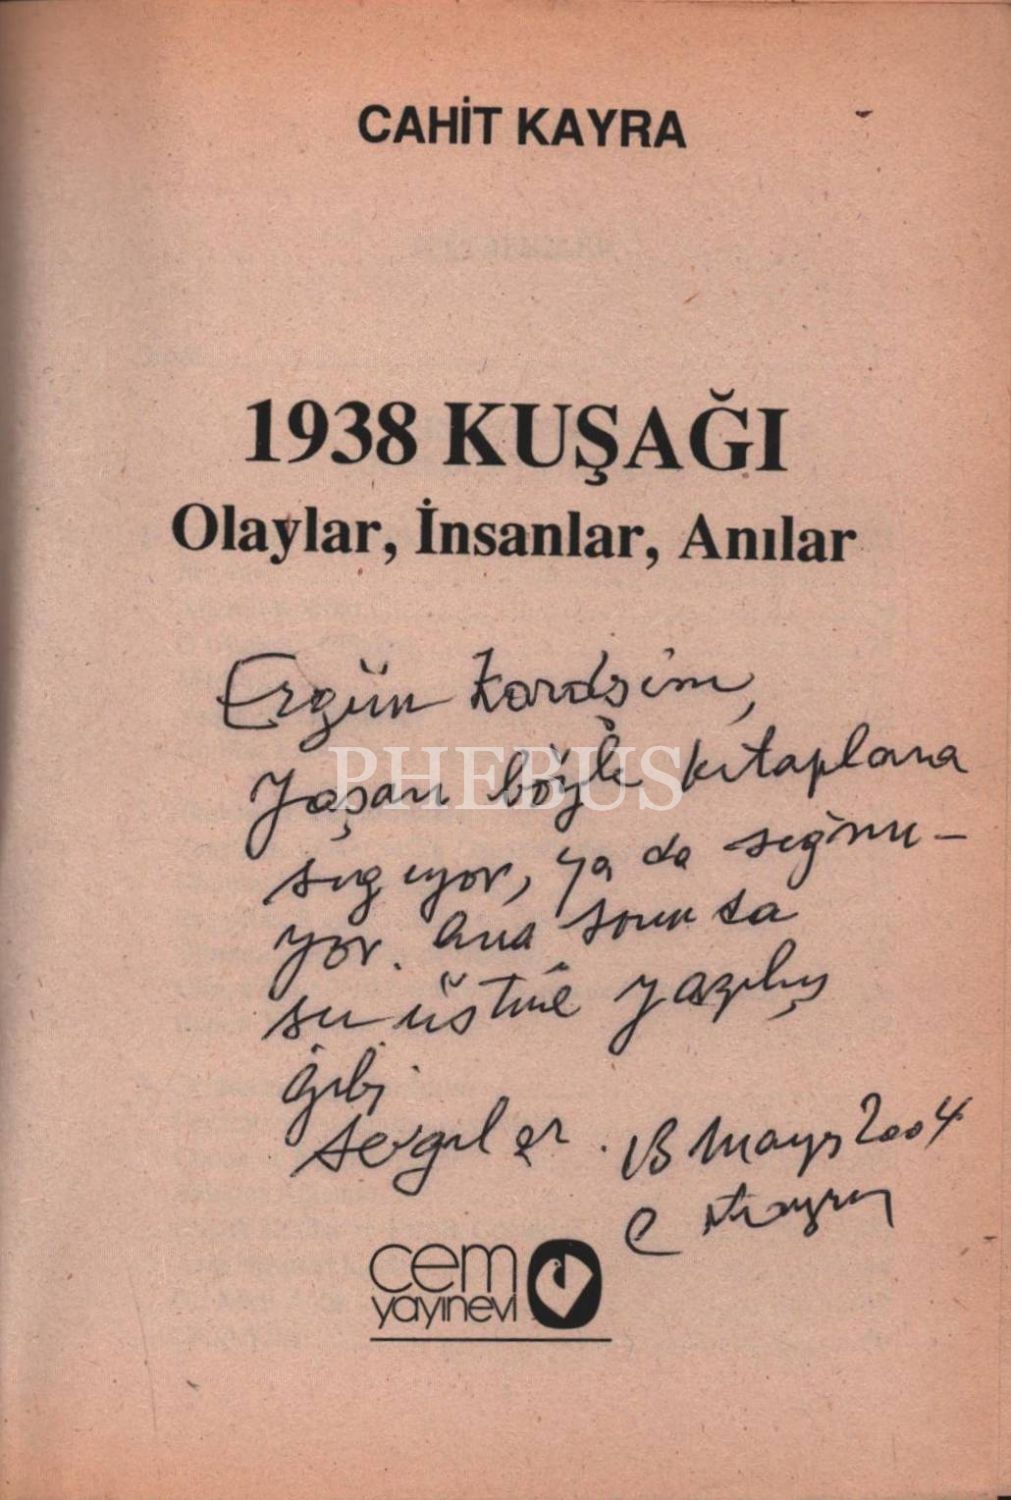 CAHİT KAYRA
1938 KUŞAĞI
Olaylar, İnsanlar, Anılar
Ergün Kardşim,
PHEBUS
Yaşam böyle kitaplara
sığıyor, ya da sığmı-
yor. Ama sonunda
su üstüne yazılış
gibi
sevgiler. 13 Mayıs 2004
C Kayra
cem
yayınevi